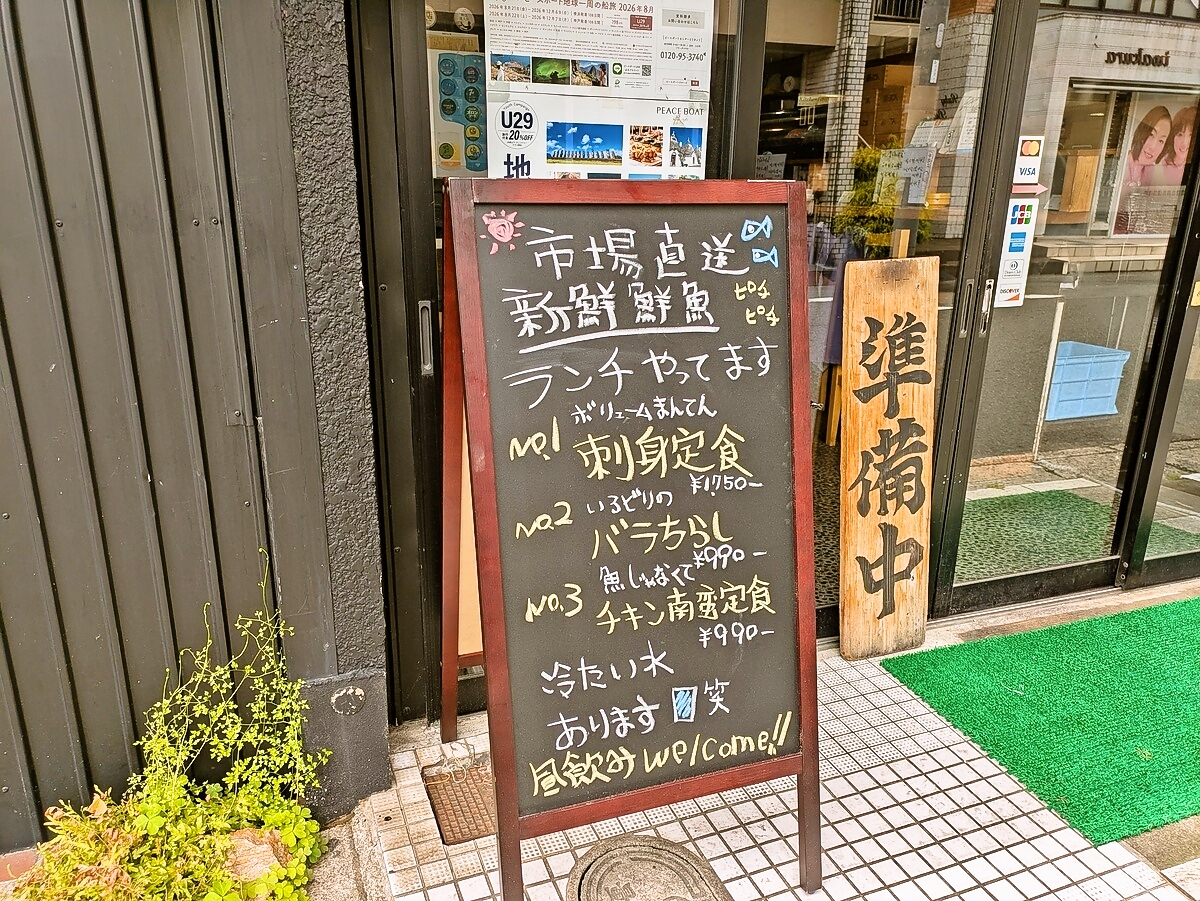 2026年8月
0120-95-3740
U29
20%OFF
PEACE BOAT
地
iwakura
VISA
JCB
DISCOVER
市場直送
新鮮鮮魚
ピチ
ピチ
ランチやってます
ボリュームまんてん
No.1
刺身定食
¥1,750-
いろどりの
No.2
バラちらし
¥990-
魚じゃなくて
No.3
チキン南蛮定食
¥990-
冷たい水
あります 笑
昼飲みwelcome!!
準備中